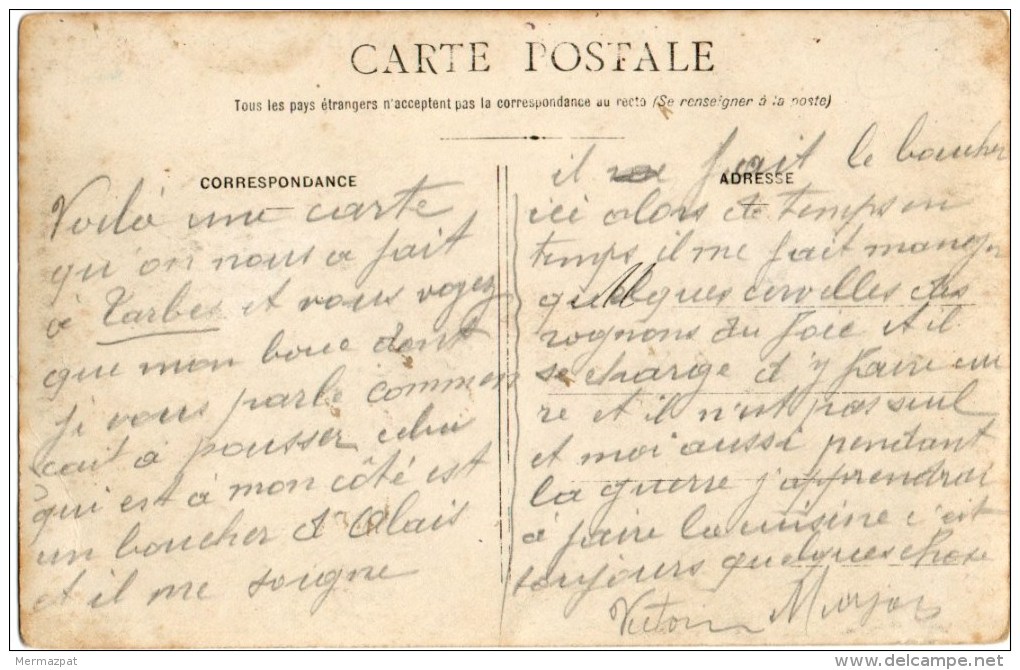 CARTE POSTALE
Tous les pays étrangers n'acceptent pas la correspondance au recto (Se renseigner à la poste)
CORRESPONDANCE
ADRESSE
Voilà une carte
qu'on nous a fait
à Tarbes et vous voyez
que mon bouc dont
je vous parle commen
cait à pousser celui
qui est à mon côté est
un boucher d'Alais
et il me soigne
il fait le boucher
ici alors de temps en
temps il me fait manger
quelques cervelles des
rognons du foie et il
se charge d'y faire cui
re et il n'est pas seul
et moi aussi pendant
la guerre j'apprendrai
à faire la cuisine c'est
toujours quelques chose
Victor
Mermazpat
www.delcampe.net